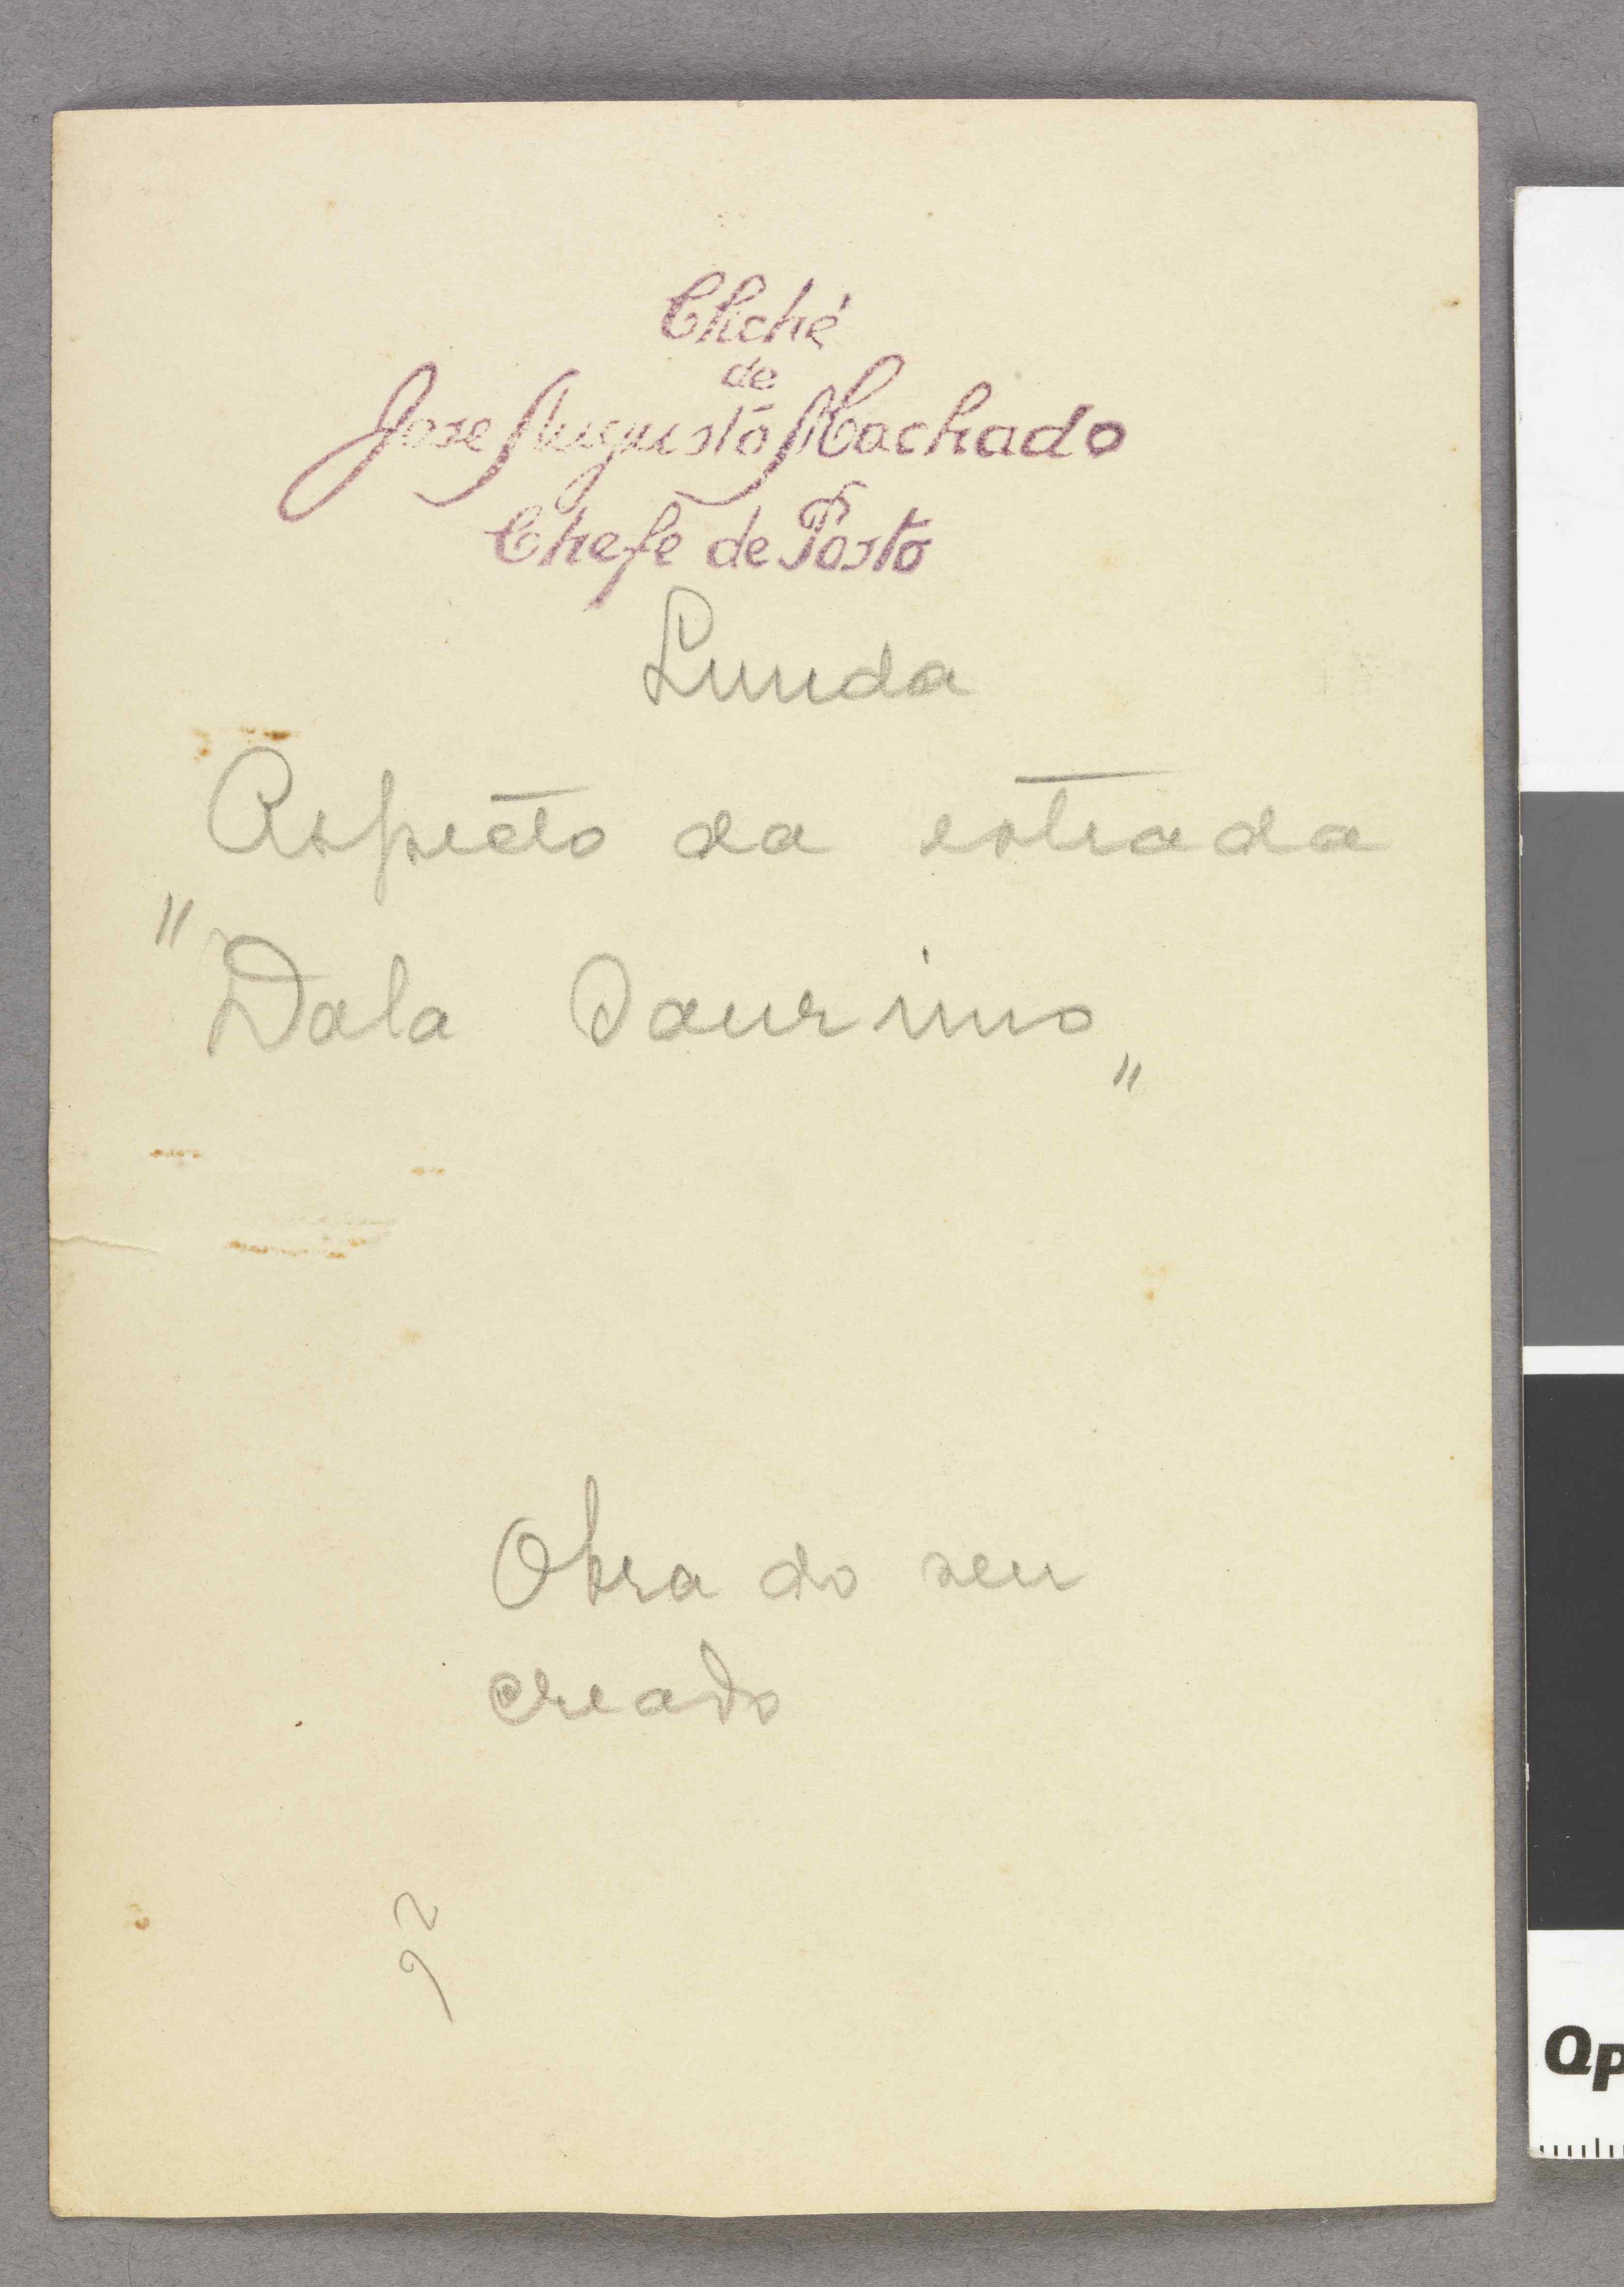 Cliché
de
Jose Augusto Machado
Chefe de Posto
Lunda
Aspecto da estrada
"Dala Saurimo"
Obra do seu
creado
92
Qp